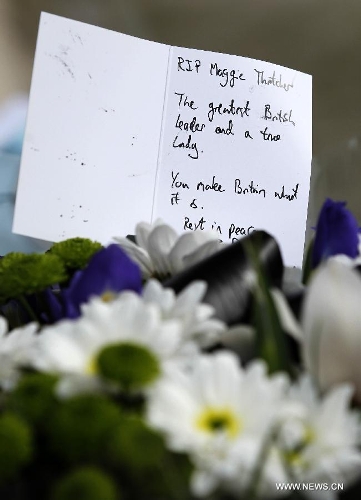 RIP Maggie Thatcher
The greatest British
leader and a true
Lady.
You make Britain what
it is.
Rest in peace
WWW.NEWS.CN